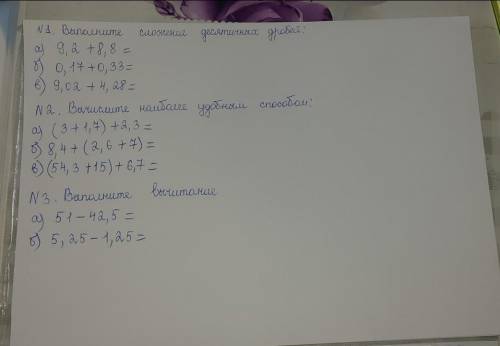 N1. Выполните сложение десятичных дробей:
а) 9,2 + 8,8 =
б) 0,17 + 0,33 =
в) 9,02 + 4,28 =
N2. Вычислите наиболее удобным способом:
а) (3 + 1,7) + 2,3 =
б) 8,4 + (2,6 + 7) =
в) (54,3 + 15) + 6,7 =
N3. Выполните вычитание
а) 51 - 42,5 =
б) 5,25 - 1,25 =